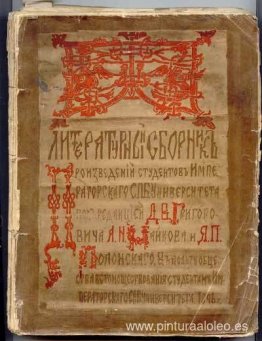 ЛИТЕРАТУРНЫЙ СБОРНИКЪ
ПРОИЗВЕДЕНІЙ СТУДЕНТОВЪ ИМПЕ
РАТОРСКАГО СПБ УНИВЕРСИТЕТА
ПОДЪ РЕДАКЦІЕЙ Д.В. ГРИГОРО
ВИЧА А.Н. МАЙКОВА И Я.П.
ПОЛОНСКАГО. ВЪ ПОЛЬЗУ ОБЩЕ
СТВА ВСПОМОЩЕСТВОВАНІЯ СТУДЕНТАМЪ ИМ
ПЕРАТОРСКАГО СПБ УНИВЕРСИТЕТА
www.pinturaaloleo.es